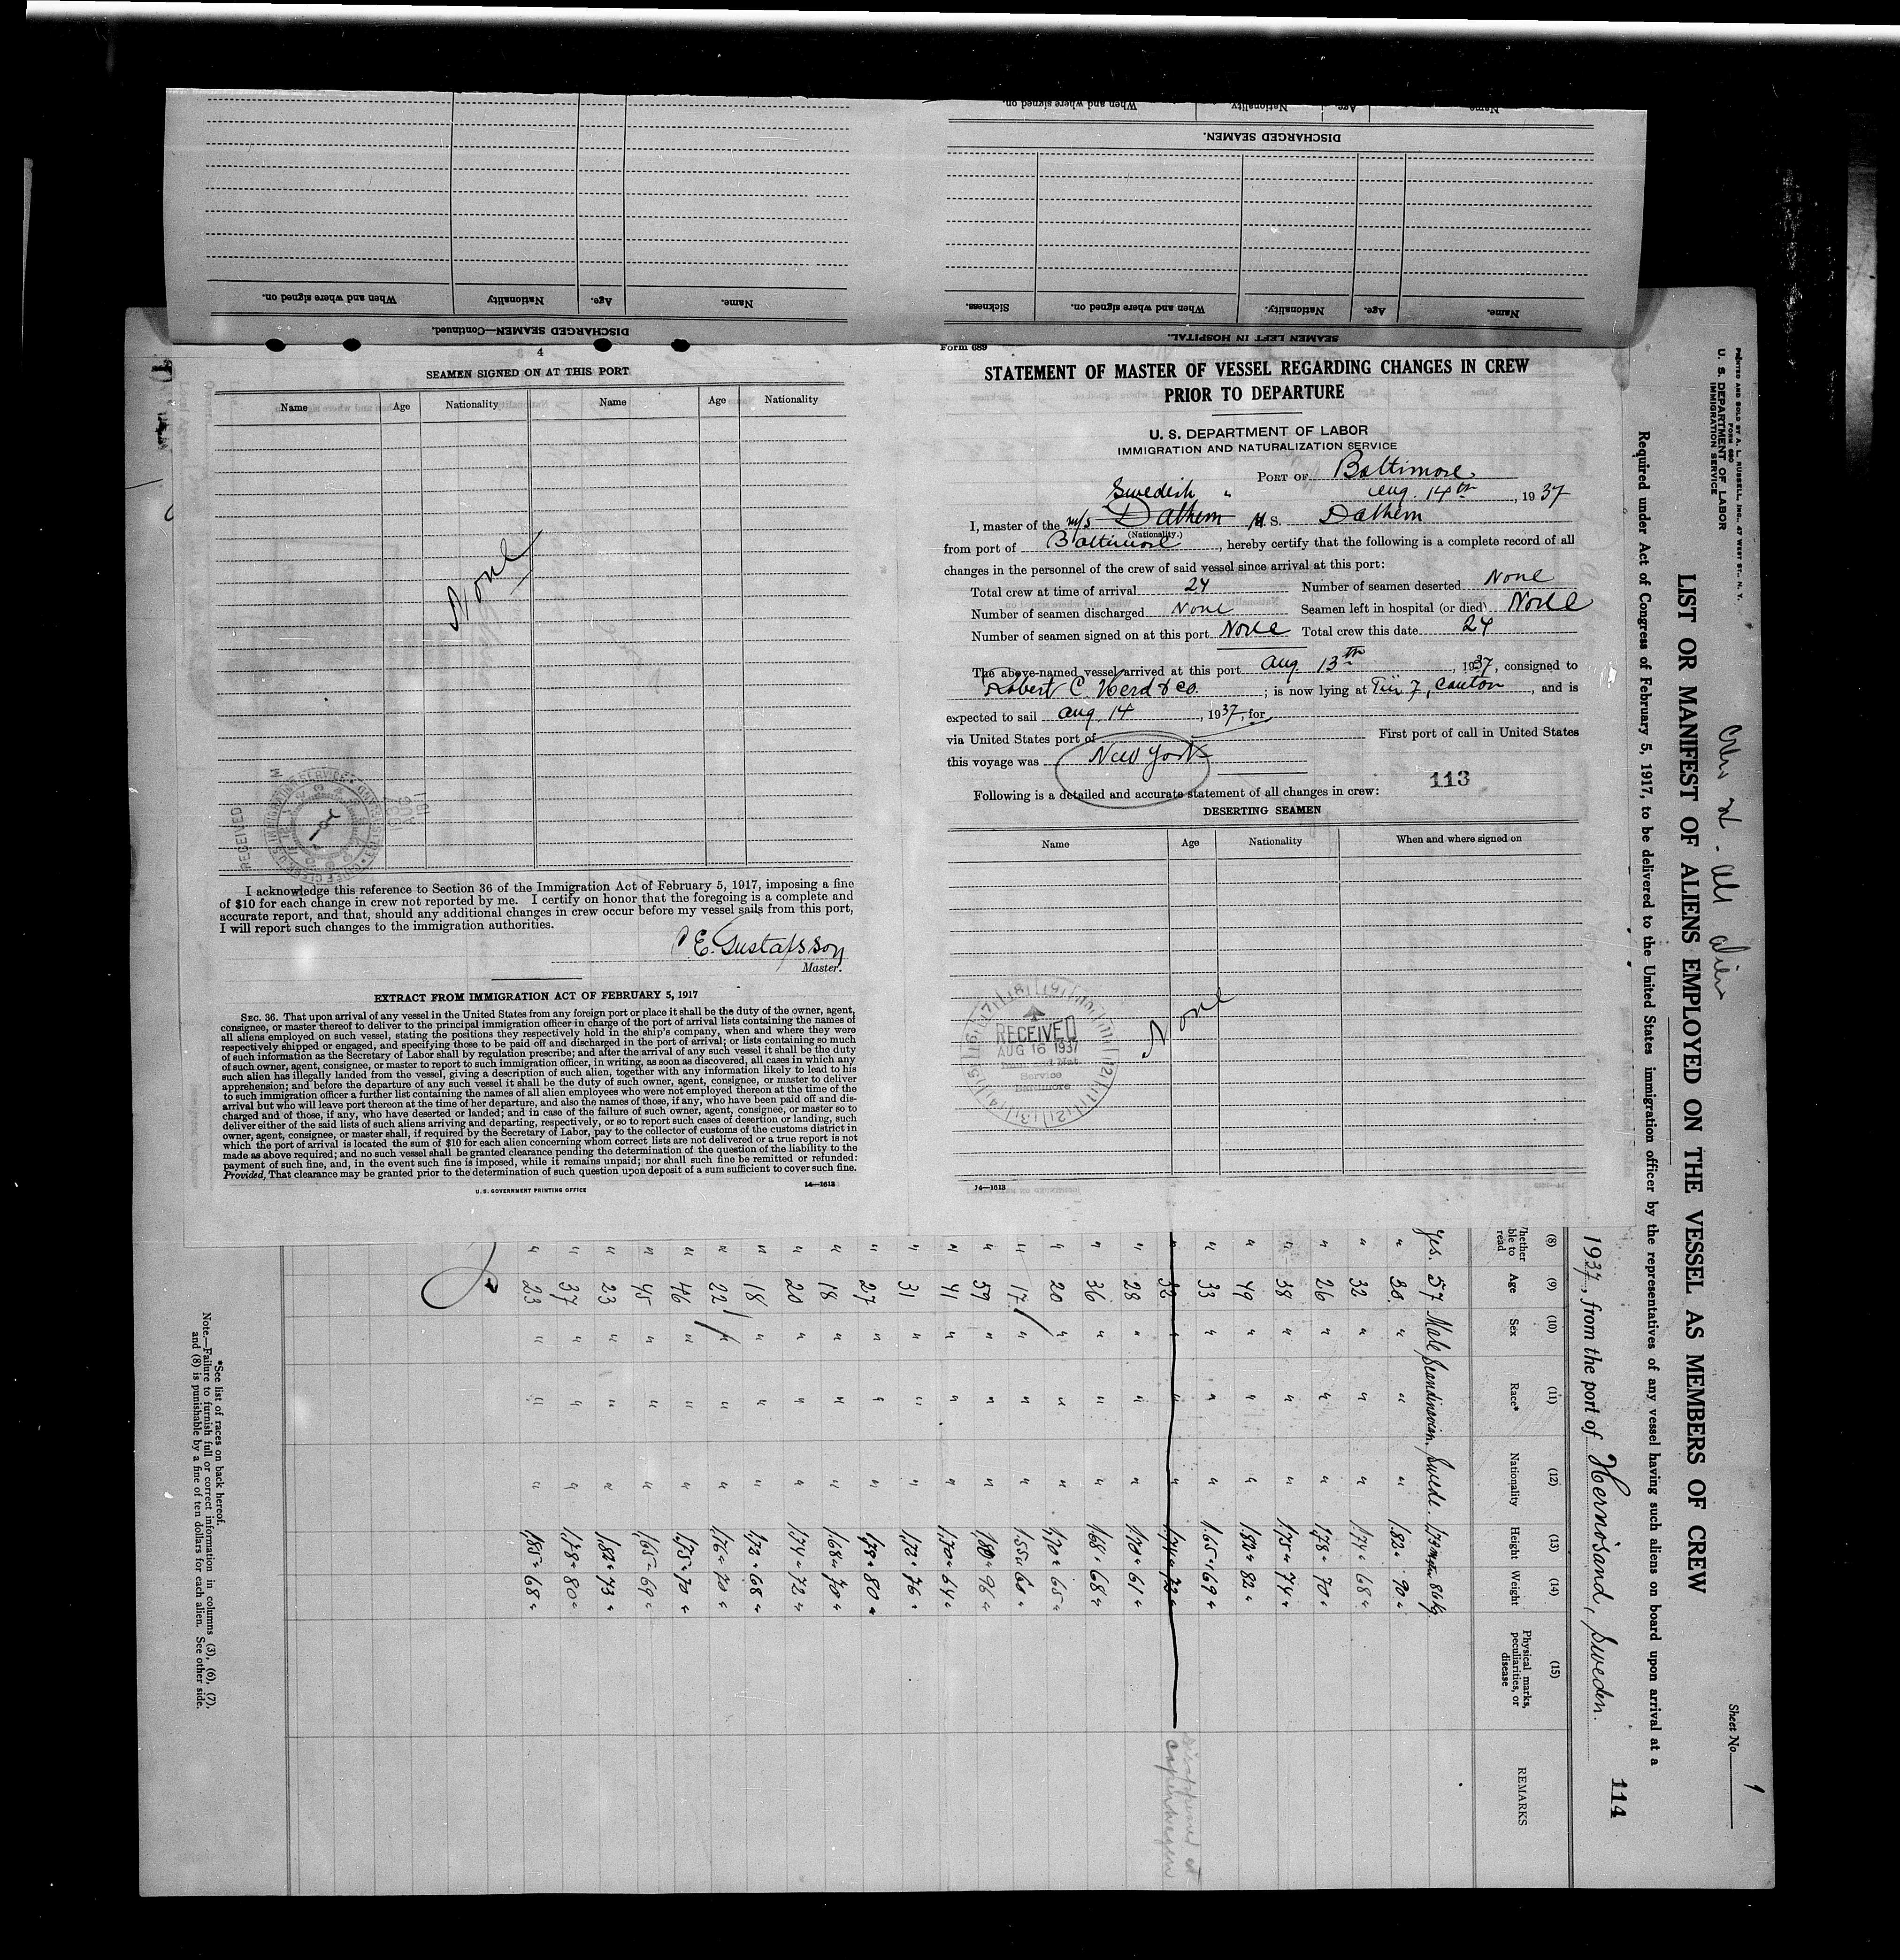 When and where signed on.
Nationality
Age.
Name.
DISCHARGED SEAMEN—Continued.
When and where signed on.
Nationality
Age.
Name.
DISCHARGED SEAMEN.
Sickness.
When and where signed on.
Nationality.
Age.
Name.
SEAMEN LEFT IN HOSPITAL.
4
SEAMEN SIGNED ON AT THIS PORT
Name Age Nationality Name Age Nationality
None
RECEIVED
I acknowledge this reference to Section 36 of the Immigration Act of February 5, 1917, imposing a fine
of $10 for each change in crew not reported by me. I certify on honor that the foregoing is a complete and
accurate report, and that, should any additional changes in crew occur before my vessel sails from this port,
I will report such changes to the immigration authorities.
E. Gustafsson
Master.
EXTRACT FROM IMMIGRATION ACT OF FEBRUARY 5, 1917
SEC. 36. That upon arrival of any vessel in the United States from any foreign port or place it shall be the duty of the owner, agent,
consignee, or master thereof to deliver to the principal immigration officer in charge of the port of arrival lists containing the names of
all aliens employed on such vessel, stating the positions they respectively hold in the ship's company, when and where they were
respectively shipped or engaged, and specifying those to be paid off and discharged in the port of arrival; or lists containing so much
of such information as the Secretary of Labor shall by regulation prescribe; and after the arrival of any such vessel it shall be the duty
of such owner, agent, consignee, or master to report to such immigration officer, in writing, as soon as discovered, all cases in which any
such alien has illegally landed from the vessel, giving a description of such alien, together with any information likely to lead to his
apprehension; and before the departure of any such vessel it shall be the duty of such owner, agent, consignee, or master to deliver
to such immigration officer a further list containing the names of all alien employees who were not employed thereon at the time of the
arrival but who will leave port thereon at the time of her departure, and also the names of those, if any, who have been paid off and dis-
charged and of those, if any, who have deserted or landed; and in case of the failure of such owner, agent, consignee, or master so to
deliver either of the said lists of such aliens arriving and departing, respectively, or so to report such cases of desertion or landing, such
owner, agent, consignee, or master shall, if required by the Secretary of Labor, pay to the collector of customs of the customs district in
which the port of arrival is located the sum of $10 for each alien concerning whom correct lists are not delivered or a true report is not
made as above required; and no such vessel shall be granted clearance pending the determination of the question of the liability to the
payment of such fine, and, in the event such fine is imposed, while it remains unpaid; nor shall such fine be remitted or refunded:
Provided, That clearance may be granted prior to the determination of such question upon deposit of a sum sufficient to cover such fine.
U. S. GOVERNMENT PRINTING OFFICE 14—1613
Form 689
STATEMENT OF MASTER OF VESSEL REGARDING CHANGES IN CREW
PRIOR TO DEPARTURE
U. S. DEPARTMENT OF LABOR
IMMIGRATION AND NATURALIZATION SERVICE
PORT OF Baltimore
Swedish " Aug. 14th, 1937
I, master of the m/s Dathem M.S. Dathem
(Nationality.)
from port of Baltimore, hereby certify that the following is a complete record of all
changes in the personnel of the crew of said vessel since arrival at this port:
Total crew at time of arrival 24 Number of seamen deserted None
Number of seamen discharged None Seamen left in hospital (or died) None
Number of seamen signed on at this port None Total crew this date 24
The above-named vessel arrived at this port Aug. 13th, 1937, consigned to
Robert C. Herd & Co.; is now lying at 7, Canton, and is
expected to sail Aug. 14, 1937, for
via United States port of First port of call in United States
this voyage was New York
113
Following is a detailed and accurate statement of all changes in crew:
DESERTING SEAMEN
Name Age Nationality When and where signed on
None
RECEIVED
AUG 16 1937
Service
Baltimore
14—1613
PRINTED AND SOLD BY A. L. RUSSELL, INC., 47 WEST ST., N. Y.
FORM 680
U. S. DEPARTMENT OF LABOR
IMMIGRATION SERVICE
Sheet No. 1
LIST OR MANIFEST OF ALIENS EMPLOYED ON THE VESSEL AS MEMBERS OF CREW
Required under Act of Congress of February 5, 1917, to be delivered to the United States immigration officer by the representatives of any vessel having such aliens on board upon arrival at a
114
1937, from the port of Hernösand, Sweden.
(8) (9) (10) (11) (12) (13) (14) (15)
Whether able to read Age Sex Race* Nationality Height Weight Physical marks, peculiarities, or disease REMARKS
yes. 57 Male Scandinavian. Swede. 1.73 86 kg.
" 30 " " " 1.82 " 90 "
" 32 " " " 1.74 " 68 "
" 26 " " " 1.78 " 70 "
" 38 " " " 1.75 " 74 "
" 49 " " " 1.82 " 82 "
" 33 " " " 1.65 " 69 "
" 32 " " " 1.74 " 72 "
" 28 " " " 1.70 " 61 "
" 36 " " " 1.68 " 68 "
" 20 " " " 1.70 " 65 "
" 17 " " " 1.55 " 60 "
" 59 " " " 1.80 " 96 "
" 41 " " " 1.70 " 64 "
" 31 " " " 1.72 " 76 "
" 27 " " " 1.78 " 80 "
" 18 " " " 1.68 " 70 "
" 20 " " " 1.74 " 72 "
" 18 " " " 1.72 " 68 "
" 22 " " " 1.76 " 70 "
" 46 " " " 1.75 " 70 "
" 45 " " " 1.65 " 69 "
" 23 " " " 1.82 " 73 "
" 37 " " " 1.78 " 80 "
" 23 " " " 1.85 " 68 "
*See list of races on back hereof.
Note.—Failure to furnish full or correct information in columns (3), (6), (7),
and (8) is punishable by a fine of ten dollars for each alien. See other side.